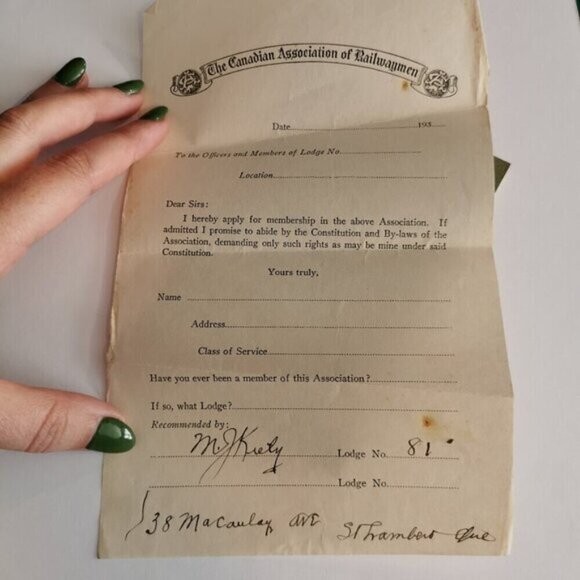 The Canadian Association of Railwaymen
Date 195
To the Officers and Members of Lodge No.
Location
Dear Sirs:
I hereby apply for membership in the above Association. If
admitted I promise to abide by the Constitution and By-laws of
the Association, demanding only such rights as may be mine under said
Constitution.
Yours truly,
Name
Address
Class of Service
Have you ever been a member of this Association?
If so, what Lodge?
Recommended by:
M J Kiely Lodge No. 81
Lodge No.
38 Macaulay Ave St Lambert Que